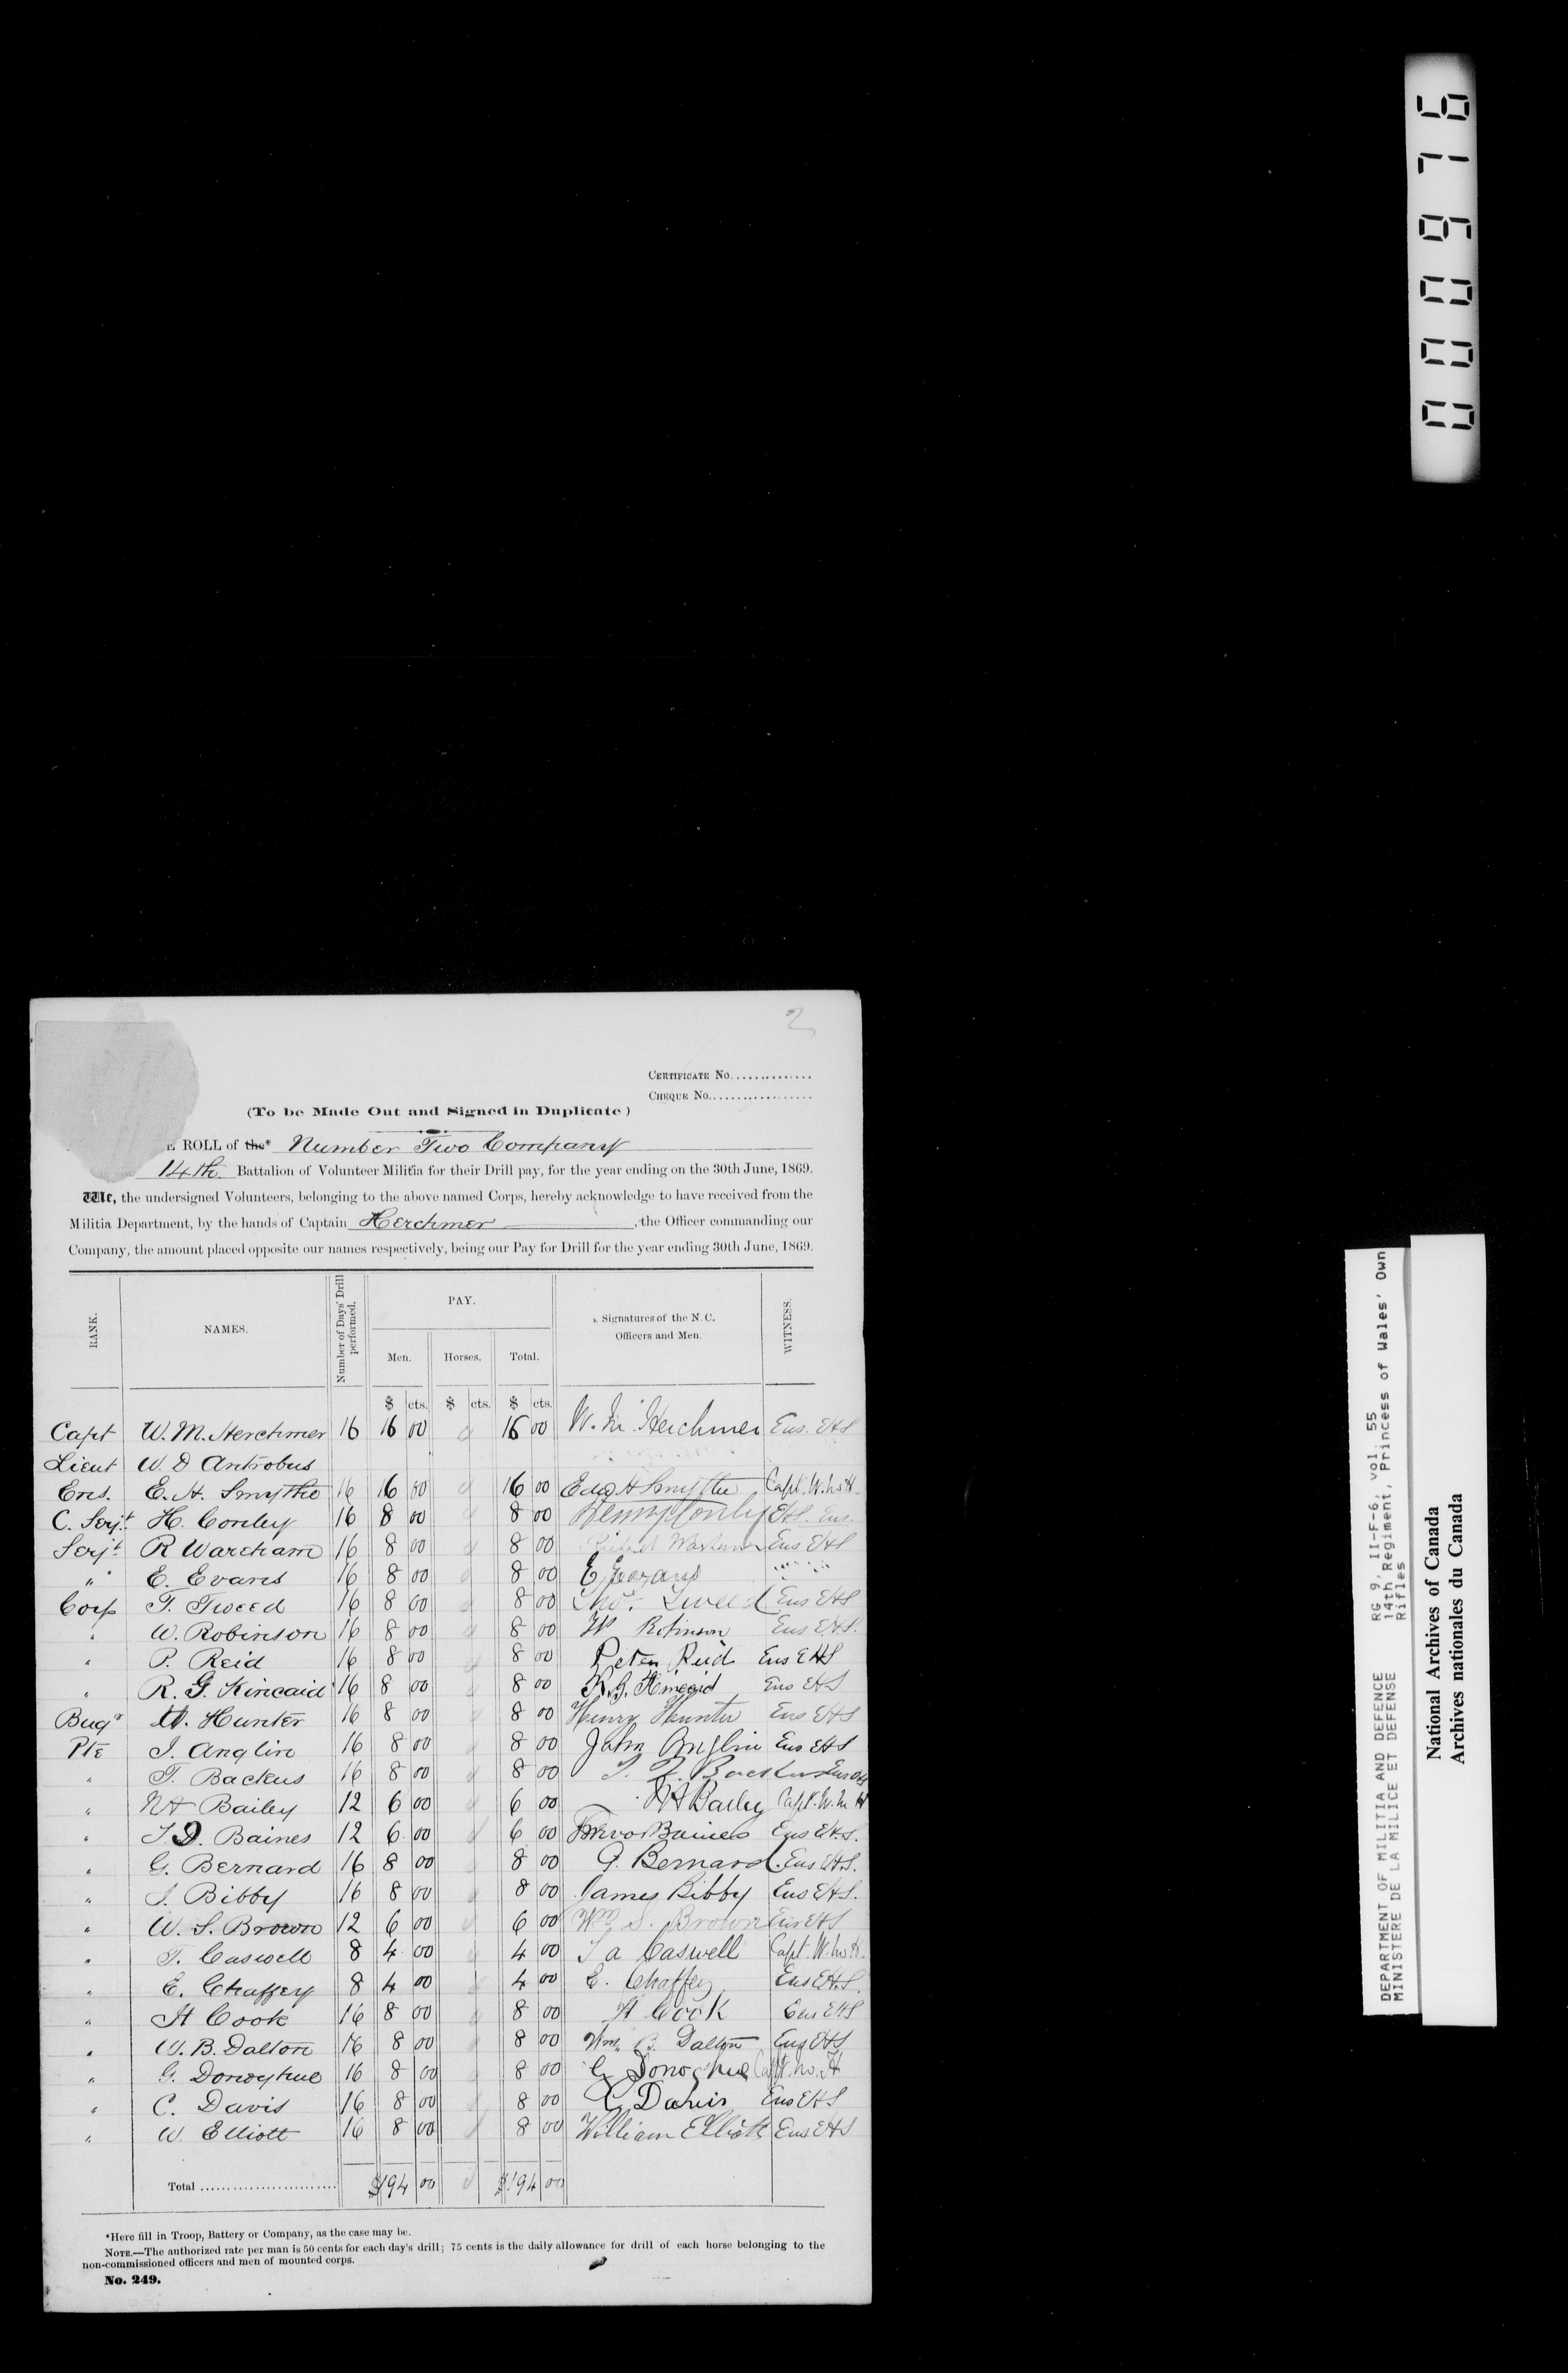 2
CERTIFICATE No..............
CHEQUE No..................
(To be Made Out and Signed in Duplicate)
E ROLL of the* Number Two Company
14th. Battalion of Volunteer Militia for their Drill pay, for the year ending on the 30th June, 1869.
We, the undersigned Volunteers, belonging to the above named Corps, hereby acknowledge to have received from the
Militia Department, by the hands of Captain Herchmer, the Officer commanding our
Company, the amount placed opposite our names respectively, being our Pay for Drill for the year ending 30th June, 1869.
RANK. NAMES. Number of Days' Drill performed. PAY. Signatures of the N.C. Officers and Men. WITNESS.
Men. Horses. Total.
$ cts. $ cts. $ cts.
Capt W. M. Herchmer 16 16 00 16 00 W. M. Herchmer Ens. EHS
Lieut W. D Antrobus
Ens. E. H. Smythe 16 16 00 16 00 Edw H Smythe Capt. W. M. H.
C. Serjt. H. Conley 16 8 00 8 00 Henry Conley EHS. Ens.
Serjt. R Wareham 16 8 00 8 00 Richd Wareham Ens EHS
" E. Evans 16 8 00 8 00 E Evans " "
Corp T. Tweed 16 8 00 8 00 Thos. Tweed Ens EHS
" W. Robinson 16 8 00 8 00 W Robinson Ens E.H.S.
" P. Reid 16 8 00 8 00 Peter Reid Ens EHS
" R. G. Kincaid 16 8 00 8 00 R. G. Kincaid Ens EHS
Bugr H. Hunter 16 8 00 8 00 Henry Hunter Ens EHS
Pte J. Anglin 16 8 00 8 00 John Anglin Ens EHS
" T. Backus 16 8 00 8 00 Backus Ens EHS
" NA Bailey 12 6 00 6 00 NA Bailey Capt. W. M H
" T D. Baines 12 6 00 6 00 Baines Ens E.H.S.
" G. Bernard 16 8 00 8 00 G. Bernard. Ens EHS.
" J. Bibby 16 8 00 8 00 James Bibby Ens EHS.
" W. S. Brown 12 6 00 6 00 Wm S. Brown Ens EHS
" T. Caswell 8 4 00 4 00 T a Caswell Capt. W. M. H.
" E. Chaffey 8 4 00 4 00 E. Chaffey Ens EH.S.
" H Cook 16 8 00 8 00 H Cook Ens EHS
" W. B. Dalton 16 8 00 8 00 Wm. B. Dalton Ens EHS
" G. Donoghue 16 8 00 8 00 G Donoghue Capt. W. H
" C. Davis 16 8 00 8 00 C Davis Ens EHS
" W. Elliott 16 8 00 8 00 William Elliott Ens EHS
Total .......................... $194 00 $194 00
*Here fill in Troop, Battery or Company, as the case may be.
NOTE.—The authorized rate per man is 50 cents for each day's drill; 75 cents is the daily allowance for drill of each horse belonging to the
non-commissioned officers and men of mounted corps.
No. 249.
000976
DEPARTMENT OF MILITIA AND DEFENCE
MINISTERE DE LA MILICE ET DEFENSE
RG 9, II-F-6, vol. 55
14th Regiment, Princess of Wales' Own
Rifles
National Archives of Canada
Archives nationales du Canada